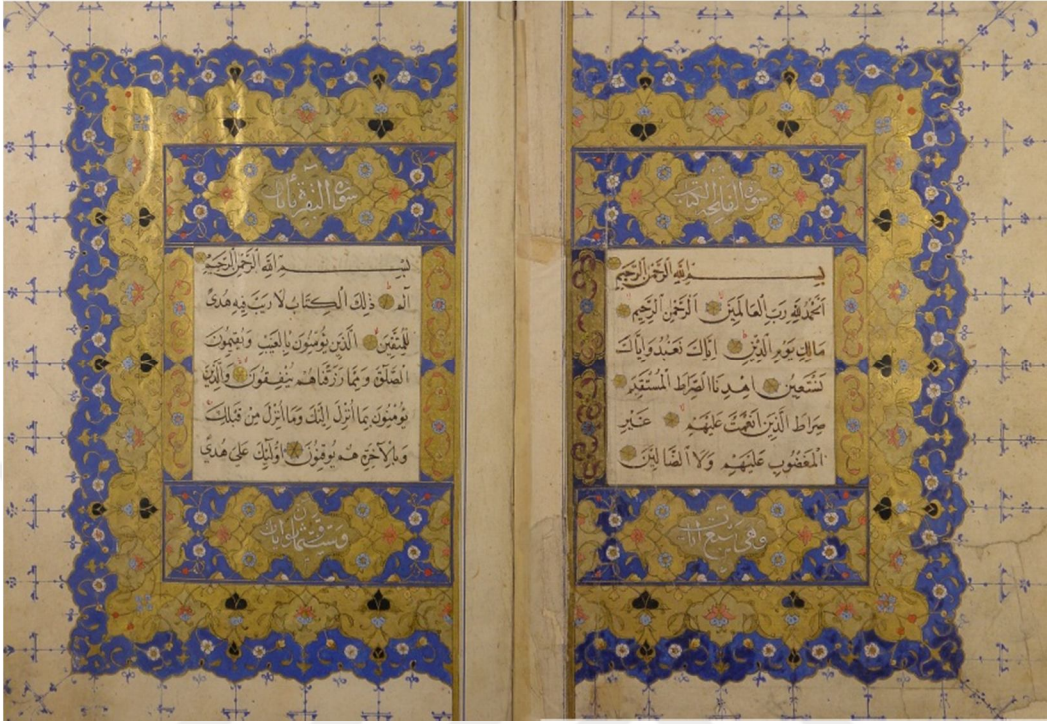 سورة الفاتحة الكتاب
بسم الله الرحمن الرحيم
اَلْحَمْدُ لِلّٰهِ رَبِّ الْعَالَمِينَ اَلرَّحْمٰنِ الرَّحِيمِ
مَالِكِ يَوْمِ الدِّينِ اِيَّاكَ نَعْبُدُ وَاِيَّاكَ
نَسْتَعِينُ اِهْدِنَا الصِّرَاطَ الْمُسْتَقِيمَ
صِرَاطَ الَّذِينَ اَنْعَمْتَ عَلَيْهِمْ غَيْرِ
الْمَغْضُوبِ عَلَيْهِمْ وَلَا الضَّالِّينَ
وهى سبع ايات
سورة البقرة مائتان
بسم الله الرحمن الرحيم
الم ذٰلِكَ الْكِتَابُ لَا رَيْبَ فِيهِ هُدًى
لِلْمُتَّقِينَ اَلَّذِينَ يُؤْمِنُونَ بِالْغَيْبِ وَيُقِيمُونَ
الصَّلٰوةَ وَمِمَّا رَزَقْنَاهُمْ يُنْفِقُونَ وَالَّذِينَ
يُؤْمِنُونَ بِمَا اُنْزِلَ اِلَيْكَ وَمَا اُنْزِلَ مِنْ قَبْلِكَ
وَبِالْاٰخِرَةِ هُمْ يُوقِنُونَ اُولٰئِكَ عَلٰى هُدًى
وثمانون